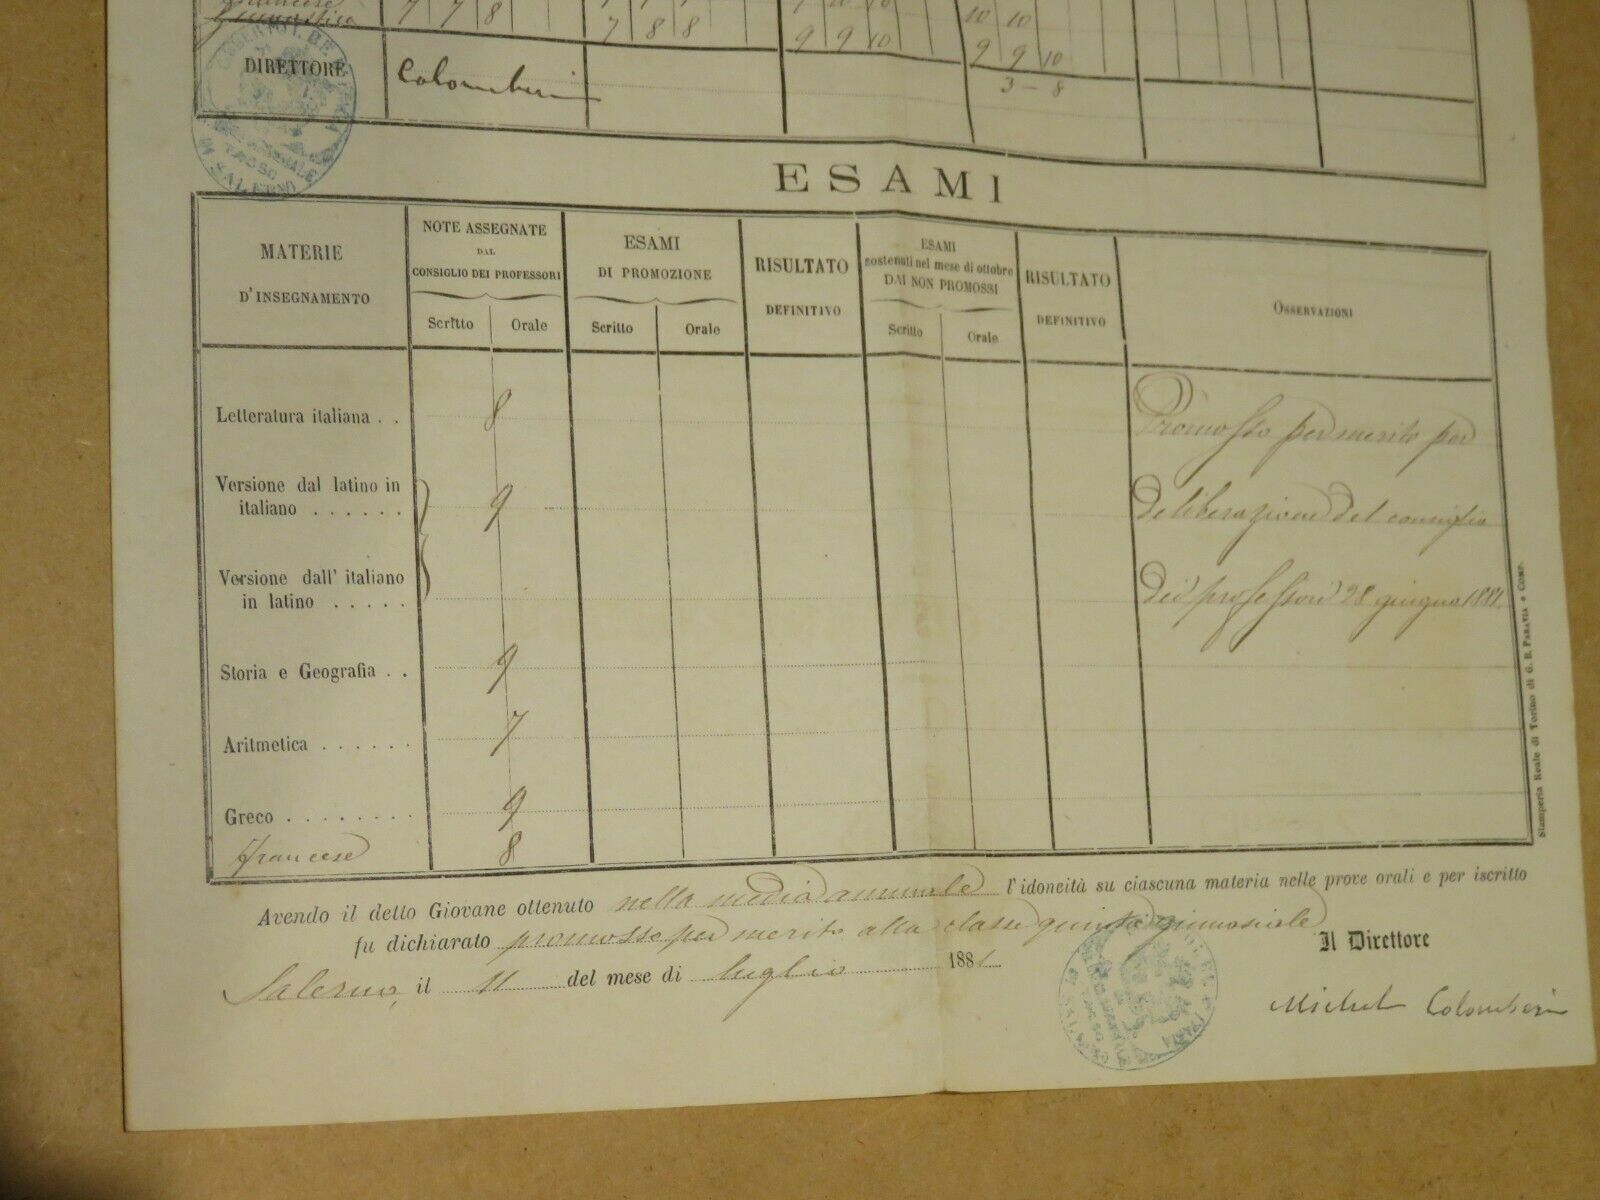 Francese
Ginnastica 7 7 8 7 8 8 9 9 10 9 9 10
10 10
3-8
DIRETTORE Colomberi
SALERNO
ESAMI
MATERIE
D'INSEGNAMENTO
NOTE ASSEGNATE
DAL
CONSIGLIO DEI PROFESSORI
Scritto Orale
ESAMI
DI PROMOZIONE
Scritto Orale
RISULTATO
DEFINITIVO
ESAMI
sostenuti nel mese di ottobre
DAI NON PROMOSSI
Scritto Orale
RISULTATO
DEFINITIVO
OSSERVAZIONI
Letteratura italiana . . 8
Versione dal latino in
italiano . . . . . . 9
Versione dall' italiano
in latino . . . . .
Storia e Geografia . . 9
Aritmetica . . . . . . 7
Greco . . . . . . . . 9
francese 8
Promosso per merito per
deliberazione del consiglio
dei professori 28 giugno 1881.
Stamperia Reale di Torino di G. B. PARAVIA e COMP.
Avendo il detto Giovane ottenuto nella media annuale l'idoneità su ciascuna materia nelle prove orali e per iscritto
fu dichiarato promosso per merito alla classe quinta ginnasiale
Salerno, il 11 del mese di luglio 1881
Il Direttore
Michel Colomberi